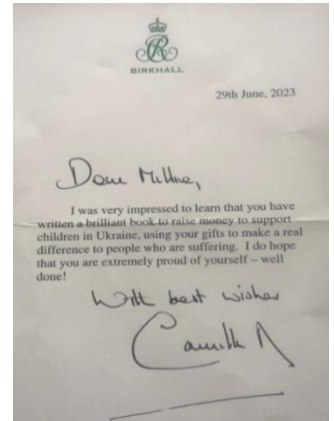 BIRKHALL
29th June, 2023
Dear
I was very impressed to learn that you have
written a brilliant book to raise money to support
children in Ukraine, using your gifts to make a real
difference to people who are suffering. I do hope
that you are extremely proud of yourself – well
done!
With best wishes
Camilla R